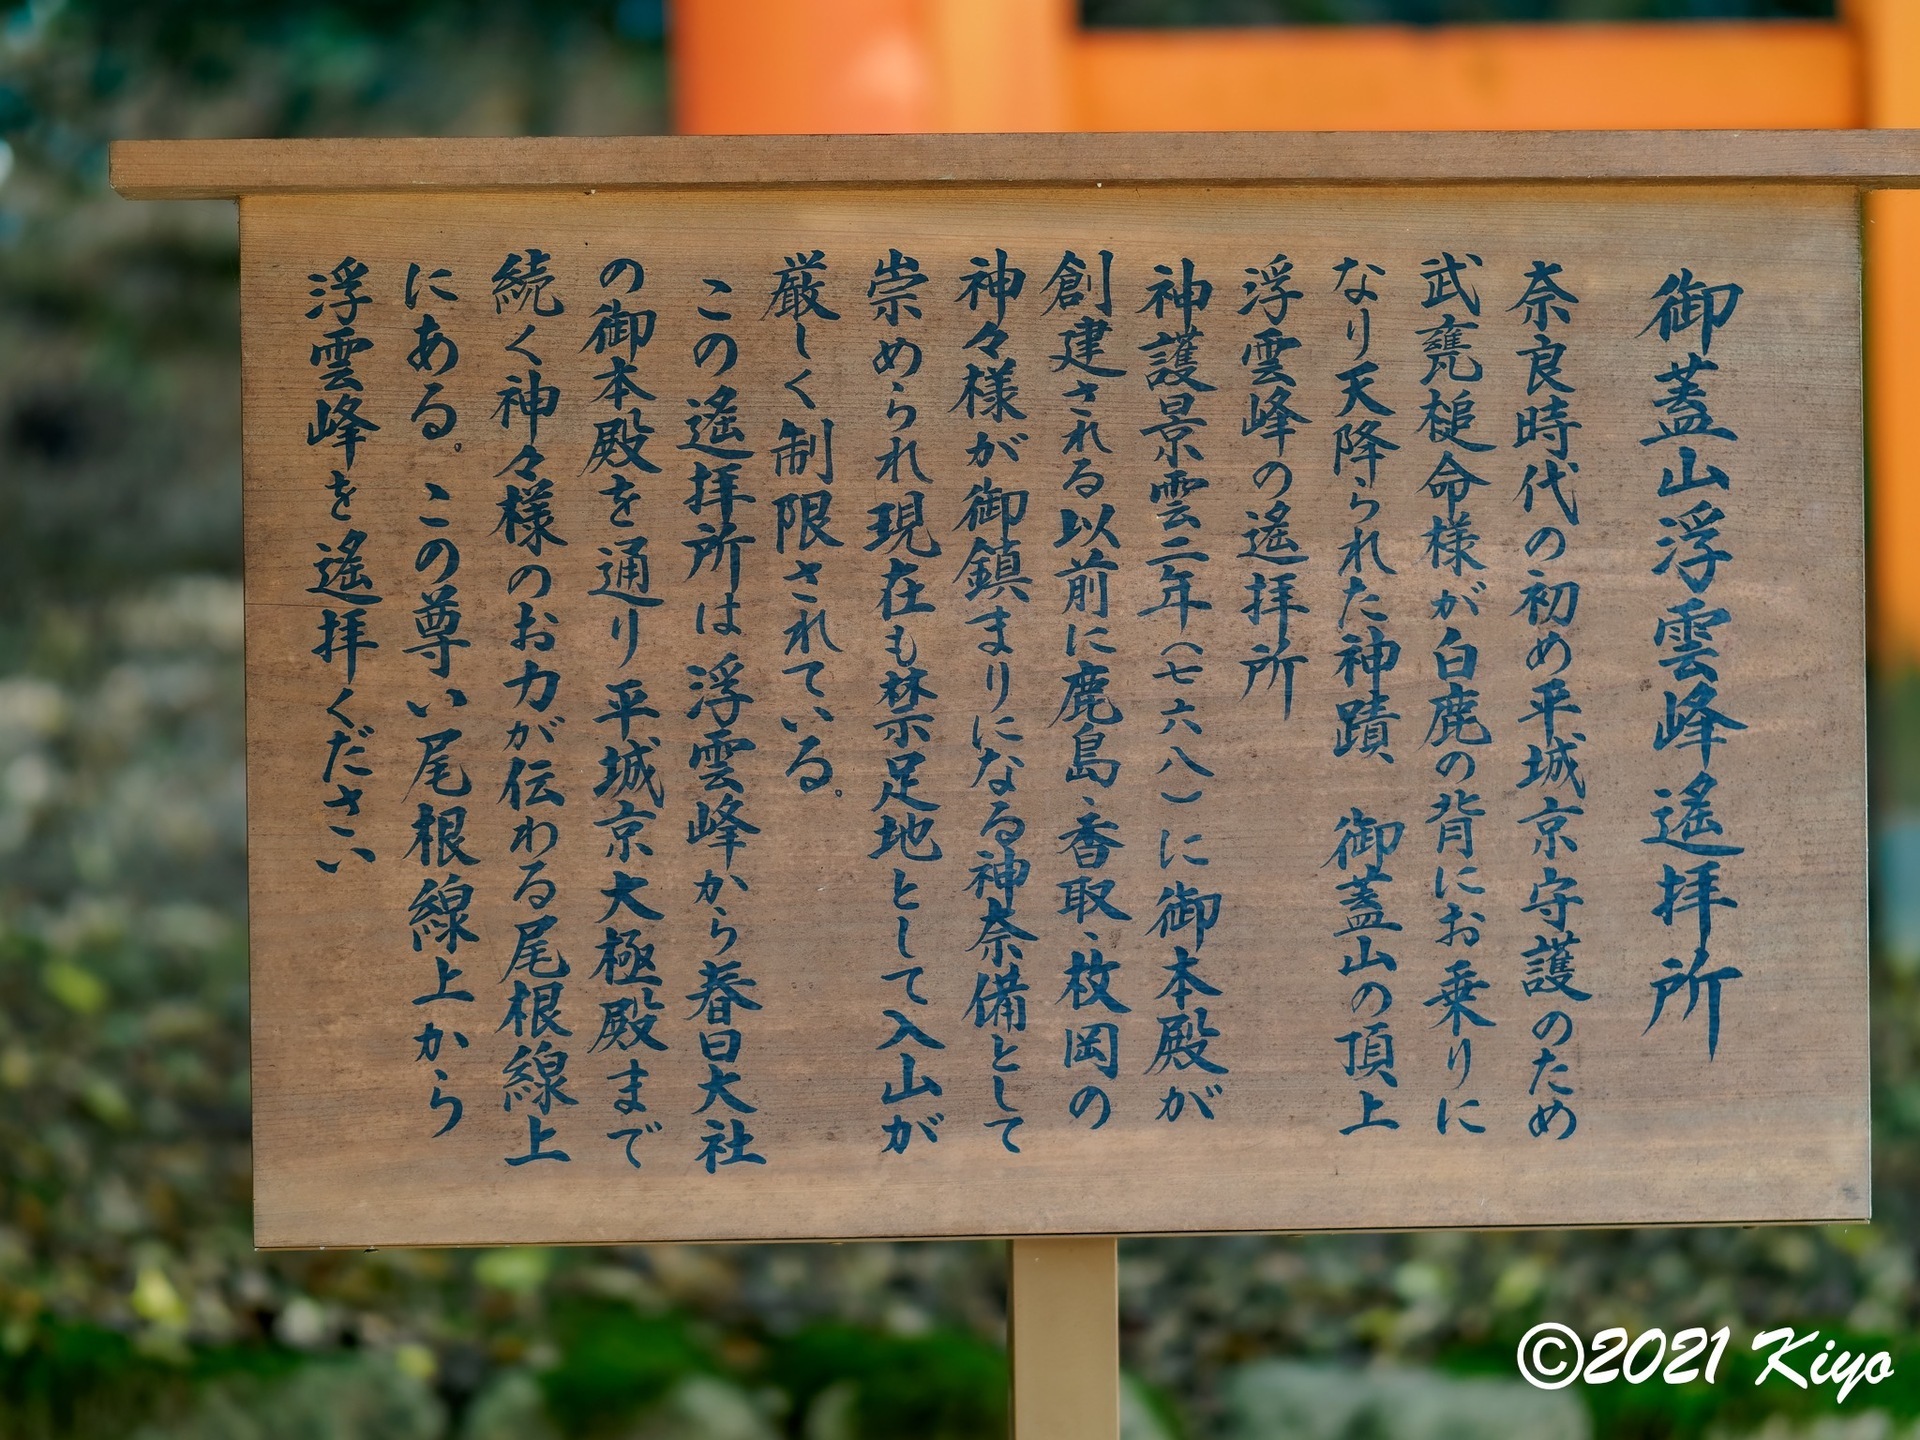 御蓋山浮雲峰遙拝所
奈良時代の初め平城京守護のため
武甕槌命様が白鹿の背にお乗りに
なり天降られた神蹟 御蓋山の頂上
浮雲峰の遙拝所
神護景雲二年(七六八)に御本殿が
創建される以前に鹿島、香取、枚岡の
神々様が御鎮まりになる神奈備として
崇められ現在も禁足地として入山が
厳しく制限されている。
この遙拝所は浮雲峰から春日大社
の御本殿を通り平城京大極殿まで
続く神々様のお力が伝わる尾根線上
にある。この尊い尾根線上から
浮雲峰を遙拝ください
©2021 Kiyo